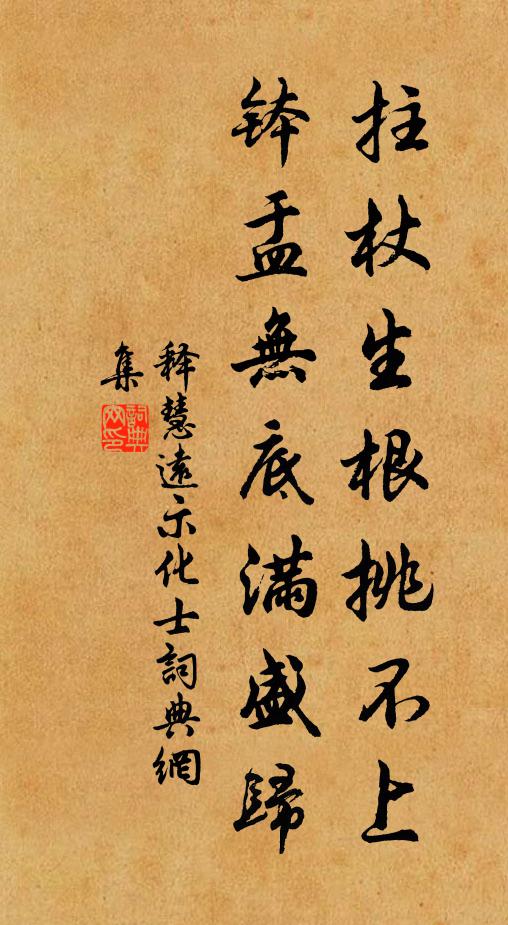 拄杖生根挑不上
鉢盂無底滿盛歸
釋慧遠示化士詞典網
集
詞典
网印